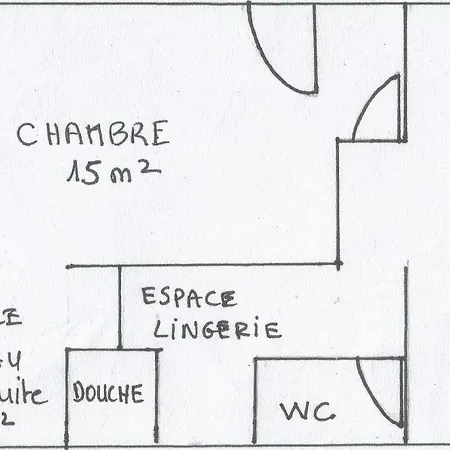 CHAMBRE
15 m²
ESPACE
LINGERIE
DOUCHE
WC